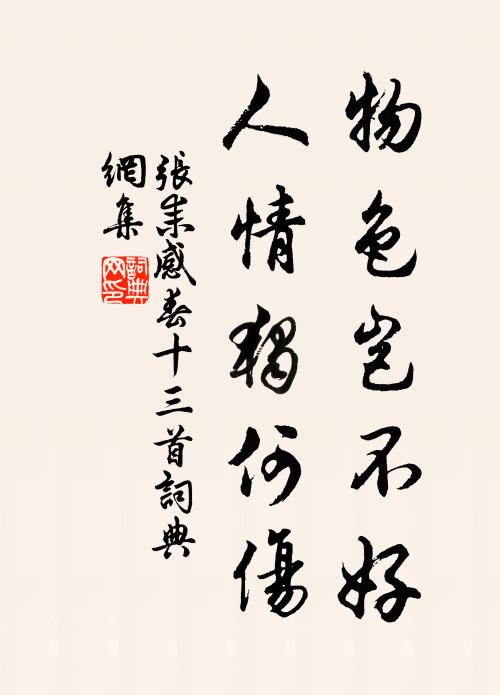 物色豈不好
人情獨何傷
張耒感春十三首詞典
網集
詞典
网印